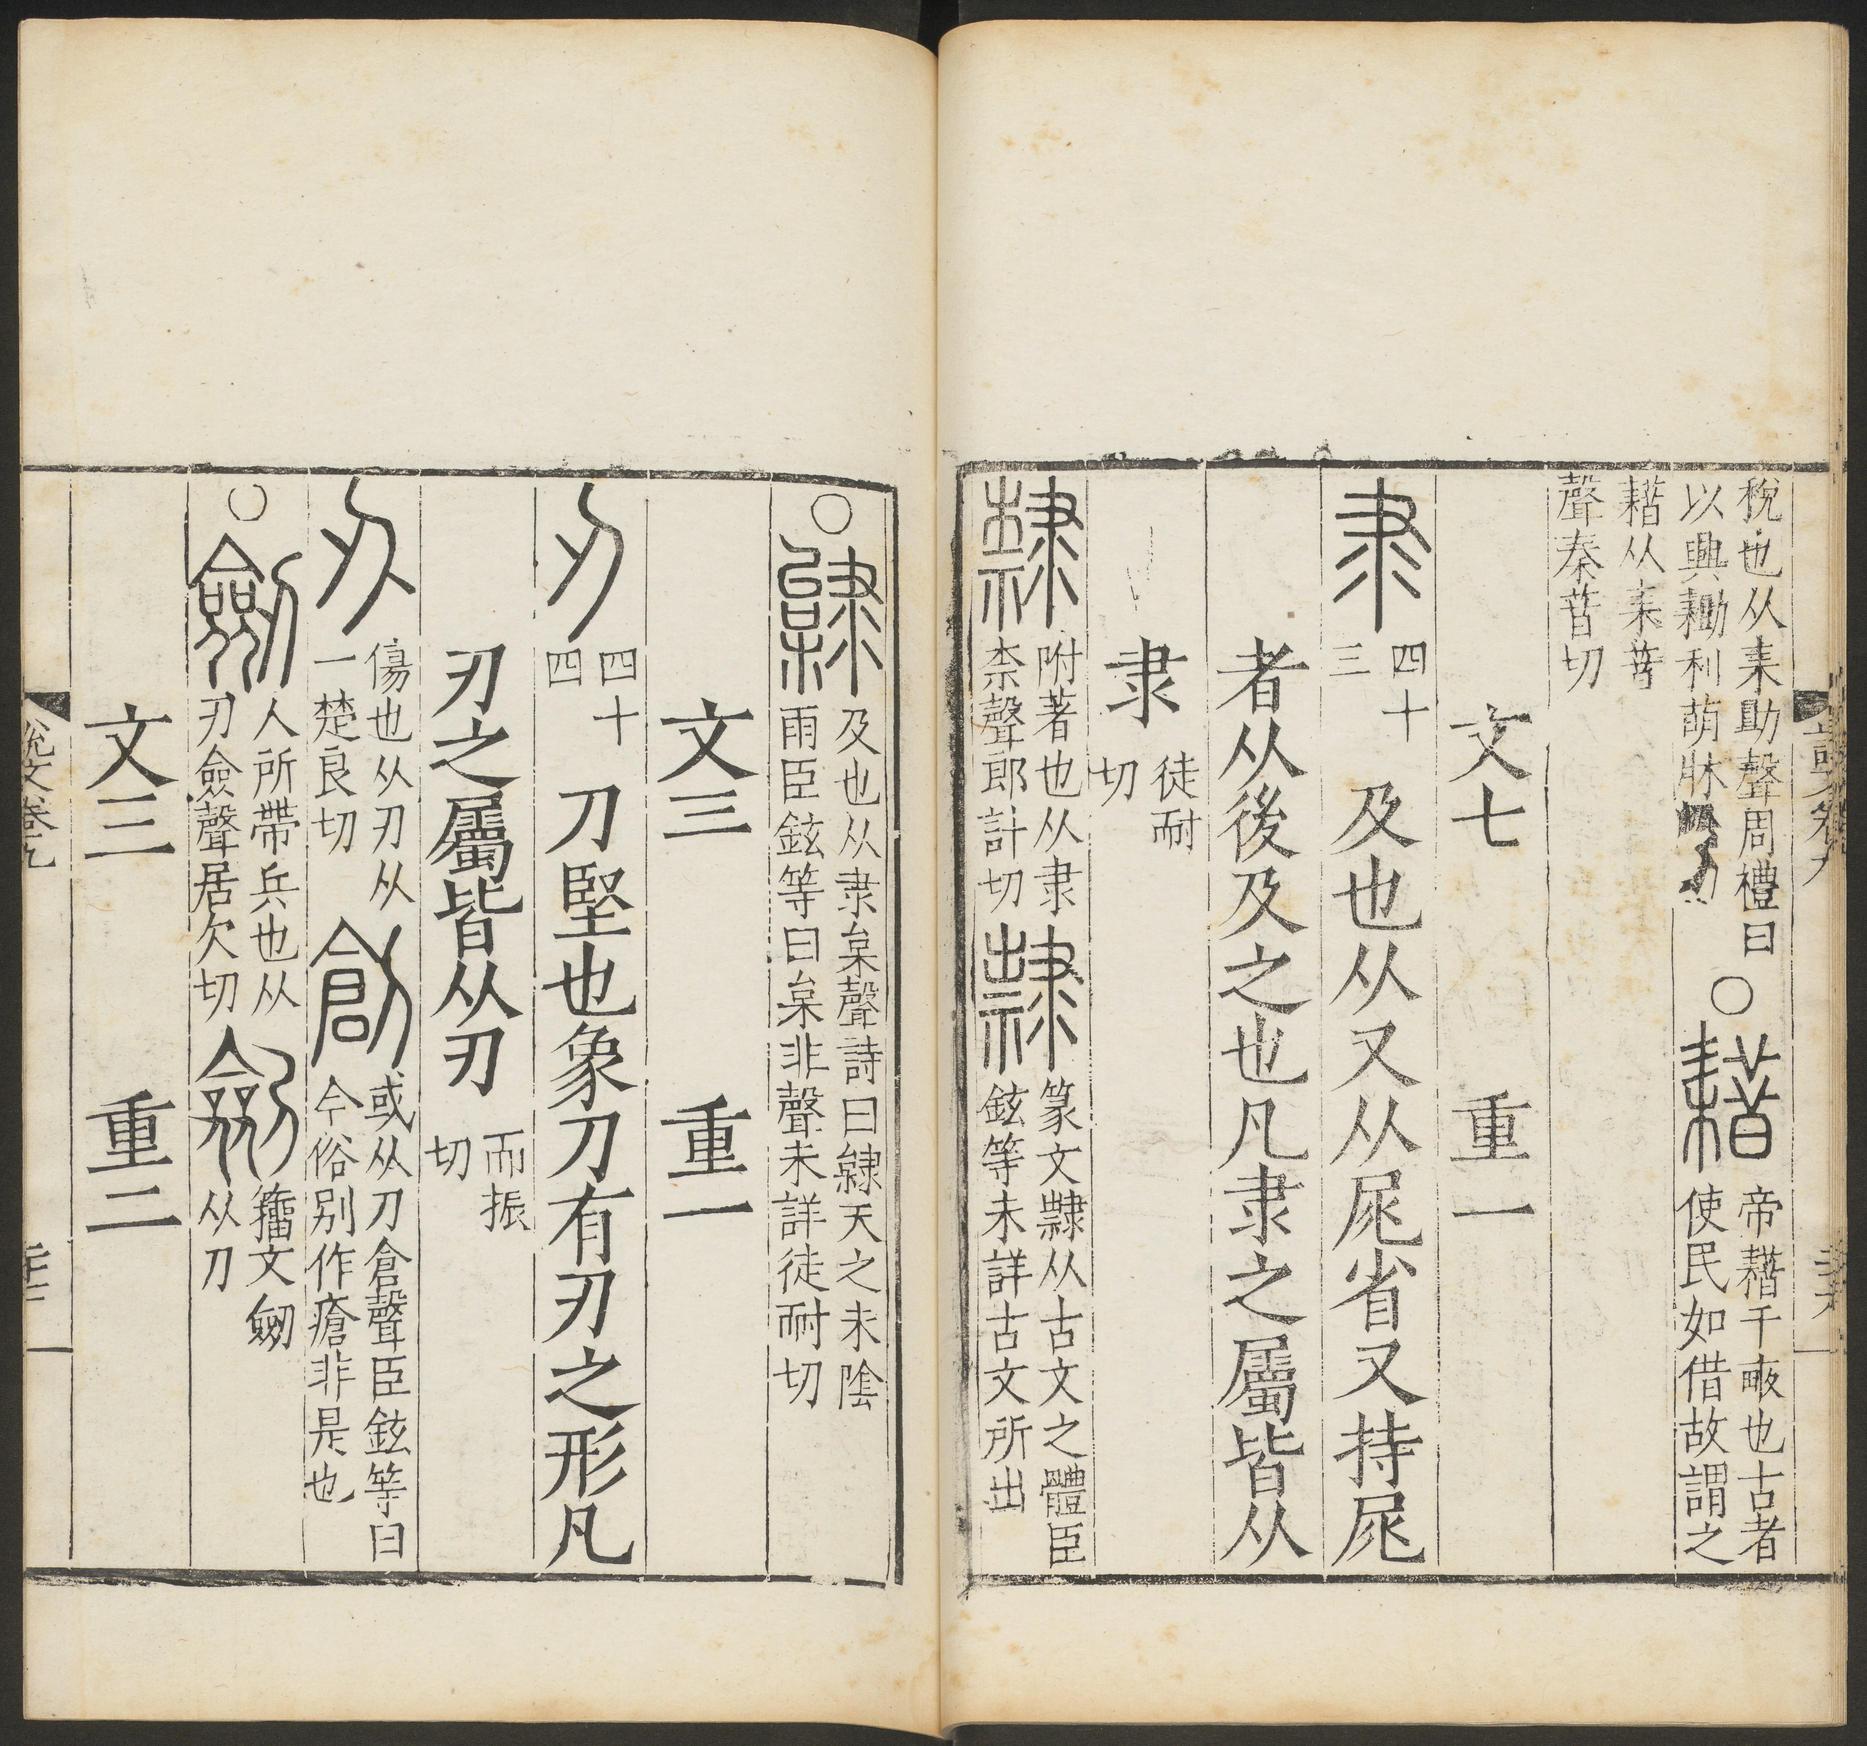 稅也从耒助聲周禮曰
以興耡利萌牀
○耤帝耤千畝也古者
使民如借故謂之
耤从耒昔
聲秦昔切
文七　重一
隶四十
三
及也从又从尾省又持尾
者从後及之也凡隶之屬皆从
隶徒耐
切
附著也从隶
柰聲郎計切
篆文隸从古文之體臣
鉉等未詳古文所出
○
及也从隶枲聲詩曰隸天之未陰
雨臣鉉等曰枲非聲未詳徒耐切
文三　重一
刃四十
四
刀堅也象刀有刃之形凡
刃之屬皆从刃而振
切
刅傷也从刃从
一楚良切
創或从刀倉聲臣鉉等曰
今俗別作瘡非是也
○劒人所帶兵也从
刃僉聲居欠切
劍籒文劒
从刀
文三　重二
說文卷九